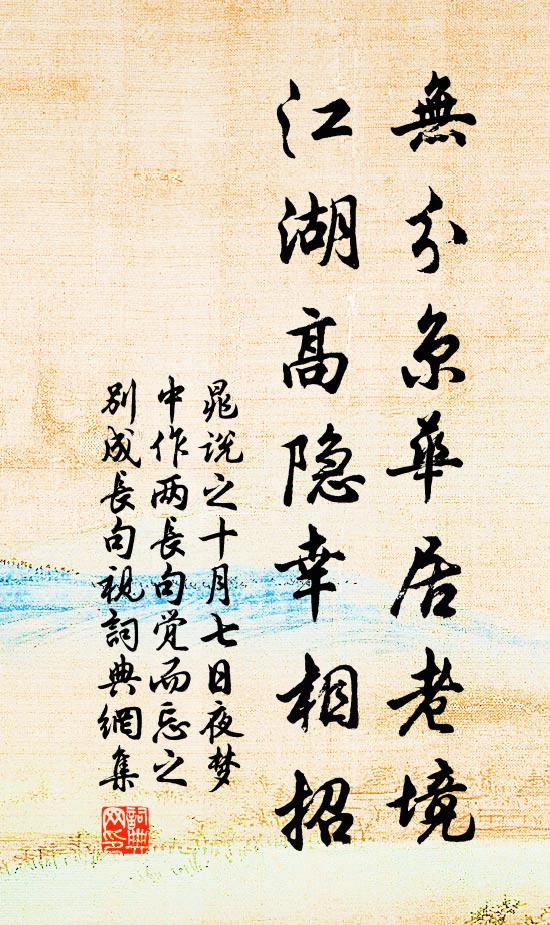 無分京華居老境
江湖高隐幸相招
晁说之十月七日夜梦
中作两长句觉而忘之
别成长句视詞典網集
詞典網印